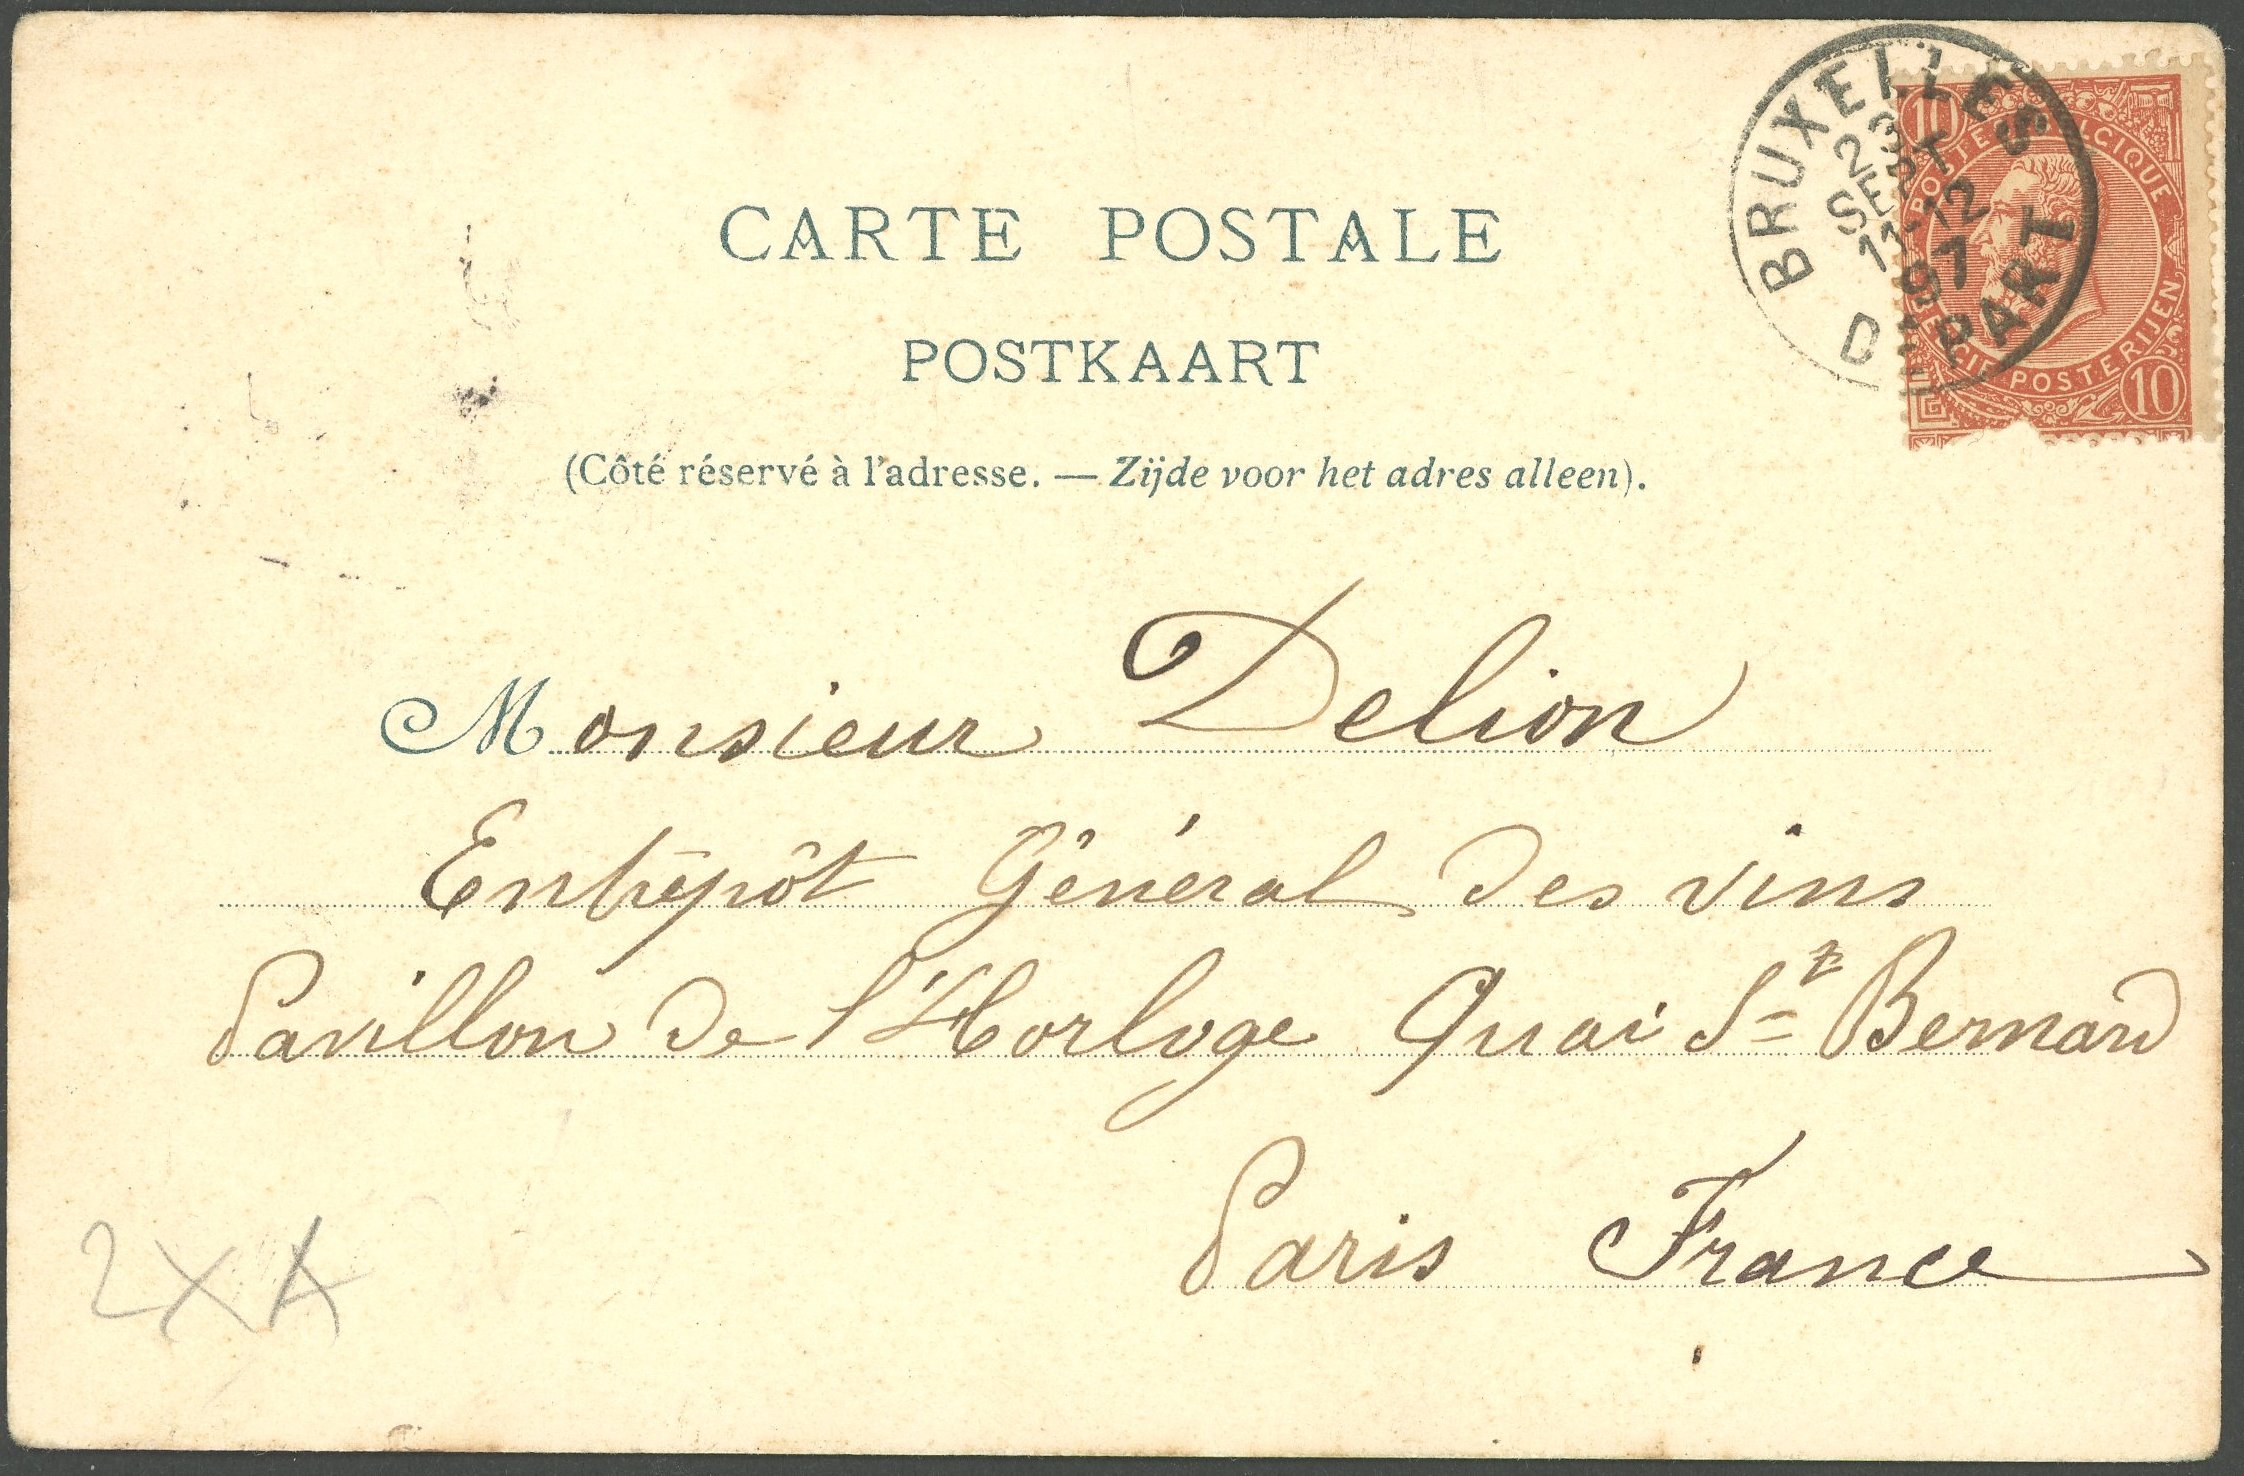 CARTE POSTALE
POSTKAART
(Côté réservé à l'adresse. — Zijde voor het adres alleen).
BRUXELLES
23
SEPT
11-12
97
DEPART
10
POSTES BELGIQUE
BELGIE POSTERIJEN
10
Monsieur Delion
Entrepôt Général des vins
Pavillon de l'Horloge Quai St Bernard
Paris France
2XA